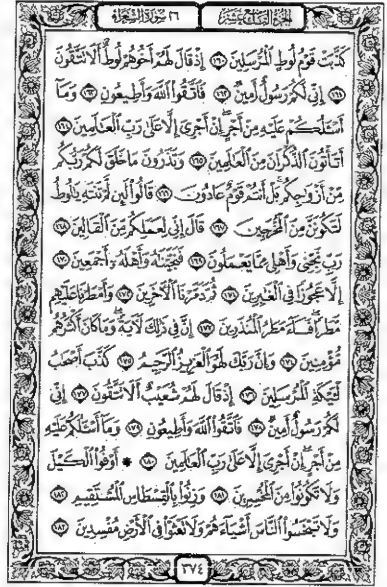 الجزء التاسع عشر ٢٦ سورة الشعراء
كَذَّبَتْ قَوْمُ لُوطٍ الْمُرْسَلِينَ ١٦٠ إِذْ قَالَ لَهُمْ أَخُوهُمْ لُوطٌ أَلَا تَتَّقُونَ
١٦١ إِنِّي لَكُمْ رَسُولٌ أَمِينٌ ١٦٢ فَاتَّقُوا اللَّهَ وَأَطِيعُونِ ١٦٣ وَمَا
أَسْأَلُكُمْ عَلَيْهِ مِنْ أَجْرٍ إِنْ أَجْرِيَ إِلَّا عَلَى رَبِّ الْعَالَمِينَ ١٦٤
أَتَأْتُونَ الذُّكْرَانَ مِنَ الْعَالَمِينَ ١٦٥ وَتَذَرُونَ مَا خَلَقَ لَكُمْ رَبُّكُمْ
مِنْ أَزْوَاجِكُمْ بَلْ أَنْتُمْ قَوْمٌ عَادُونَ ١٦٦ قَالُوا لَئِنْ لَمْ تَنْتَهِ يَا لُوطُ
لَتَكُونَنَّ مِنَ الْمُخْرَجِينَ ١٦٧ قَالَ إِنِّي لِعَمَلِكُمْ مِنَ الْقَالِينَ ١٦٨
رَبِّ نَجِّنِي وَأَهْلِي مِمَّا يَعْمَلُونَ ١٦٩ فَنَجَّيْنَاهُ وَأَهْلَهُ أَجْمَعِينَ ١٧٠
إِلَّا عَجُوزًا فِي الْغَابِرِينَ ١٧١ ثُمَّ دَمَّرْنَا الْآخَرِينَ ١٧٢ وَأَمْطَرْنَا عَلَيْهِمْ
مَطَرًا فَسَاءَ مَطَرُ الْمُنْذَرِينَ ١٧٣ إِنَّ فِي ذَلِكَ لَآيَةً وَمَا كَانَ أَكْثَرُهُمْ
مُؤْمِنِينَ ١٧٤ وَإِنَّ رَبَّكَ لَهُوَ الْعَزِيزُ الرَّحِيمُ ١٧٥ كَذَّبَ أَصْحَابُ
لْئَيْكَةِ الْمُرْسَلِينَ ١٧٦ إِذْ قَالَ لَهُمْ شُعَيْبٌ أَلَا تَتَّقُونَ ١٧٧ إِنِّي
لَكُمْ رَسُولٌ أَمِينٌ ١٧٨ فَاتَّقُوا اللَّهَ وَأَطِيعُونِ ١٧٩ وَمَا أَسْأَلُكُمْ عَلَيْهِ
مِنْ أَجْرٍ إِنْ أَجْرِيَ إِلَّا عَلَى رَبِّ الْعَالَمِينَ ١٨٠ * أَوْفُوا الْكَيْلَ
وَلَا تَكُونُوا مِنَ الْمُخْسِرِينَ ١٨١ وَزِنُوا بِالْقِسْطَاسِ الْمُسْتَقِيمِ ١٨٢
وَلَا تَبْخَسُوا النَّاسَ أَشْيَاءَهُمْ وَلَا تَعْثَوْا فِي الْأَرْضِ مُفْسِدِينَ ١٨٣
٣٧٤